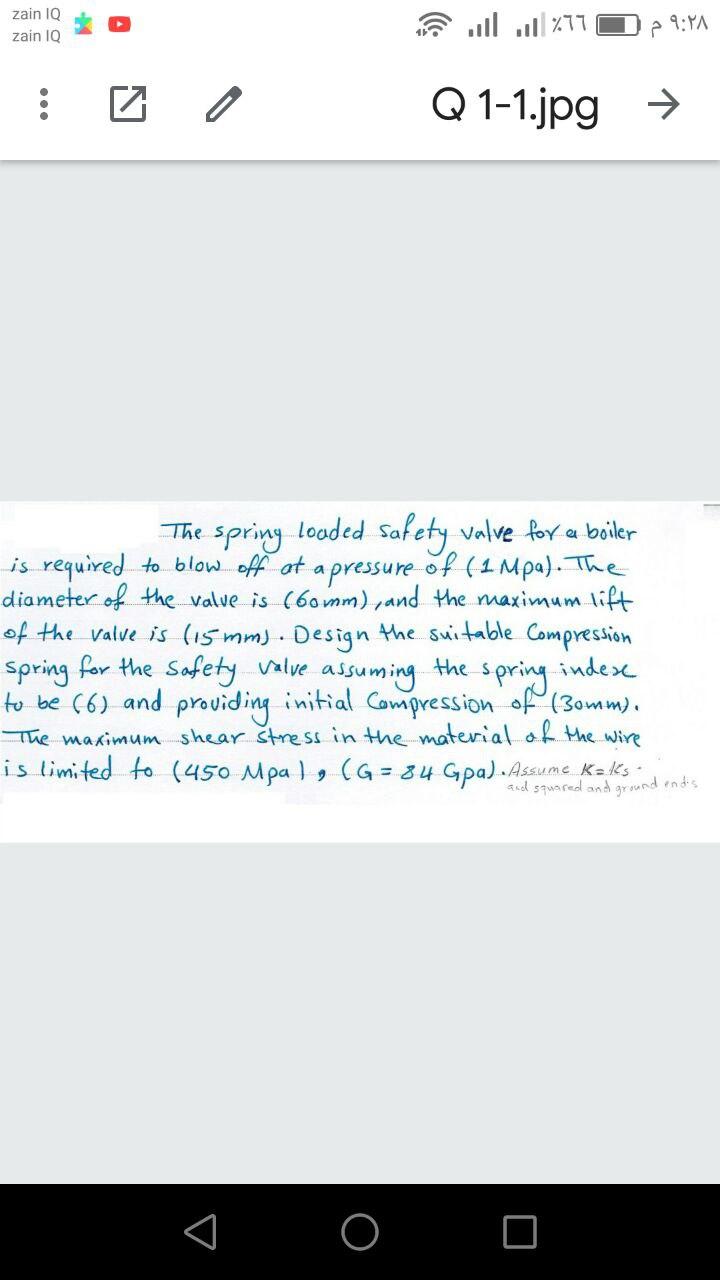 zain IQ
zain IQ
٪٦٦
٩:٢٨ م
Q 1-1.jpg
The spring loaded safety valve for a boiler
is required to blow off at a pressure of (1 Mpa). The
diameter of the valve is (60mm), and the maximum lift
of the valve is (15mm). Design the suitable Compression
spring for the Safety valve assuming the spring index
to be (6) and providing initial Compression of (30mm).
The maximum shear stress in the material of the wire
is limited to (450 Mpa), (G = 84 Gpa). Assume K=ks.
and squared and ground ends